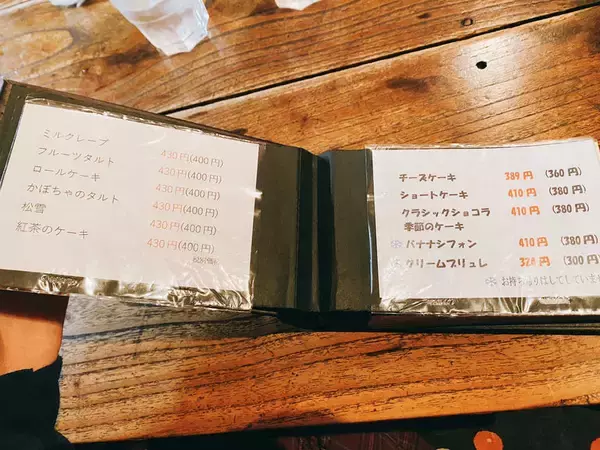 ミルクレープ 430円(400円)
フルーツタルト 430円(400円)
ロールケーキ 430円(400円)
かぼちゃのタルト 430円(400円)
松雪 430円(400円)
紅茶のケーキ 430円(400円)
チーズケーキ 389円 (360円)
ショートケーキ 410円 (380円)
クラシックショコラ 410円 (380円)
季節のケーキ
バナナシフォン 410円 (380円)
クリームブリュレ 324円 (300円)
お持ち帰りはしていませ